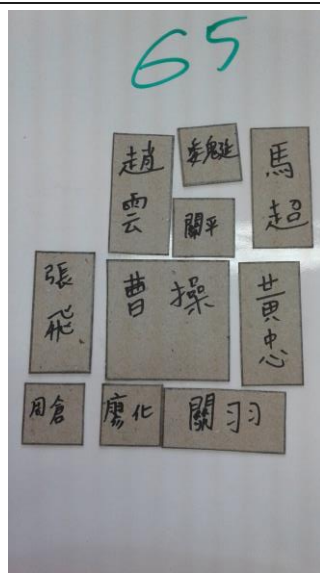 65
趙雲
魏延
馬超
關平
張飛
曹操
黃忠
周倉
廖化
關羽